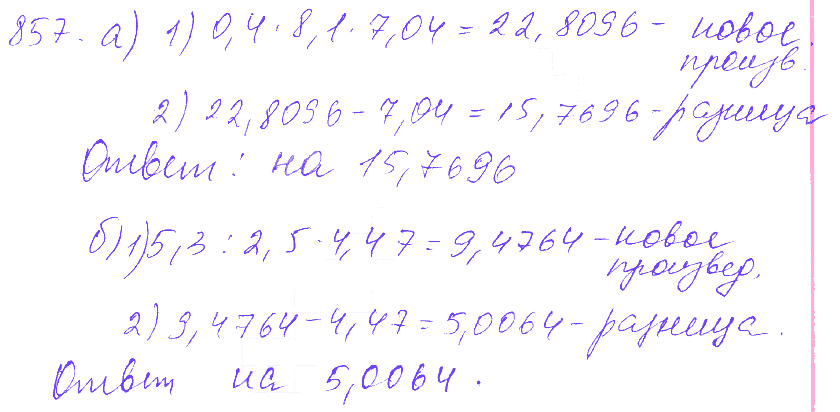 857. а) 1) 0,4 · 8,1 · 7,04 = 22,8096 – новое
произв.
2) 22,8096 – 7,04 = 15,7696 – разница
Ответ: на 15,7696
б) 1) 5,3 : 2,5 · 4,47 = 9,4764 – новое
произвед.
2) 9,4764 – 4,47 = 5,0064 – разница.
Ответ на 5,0064.